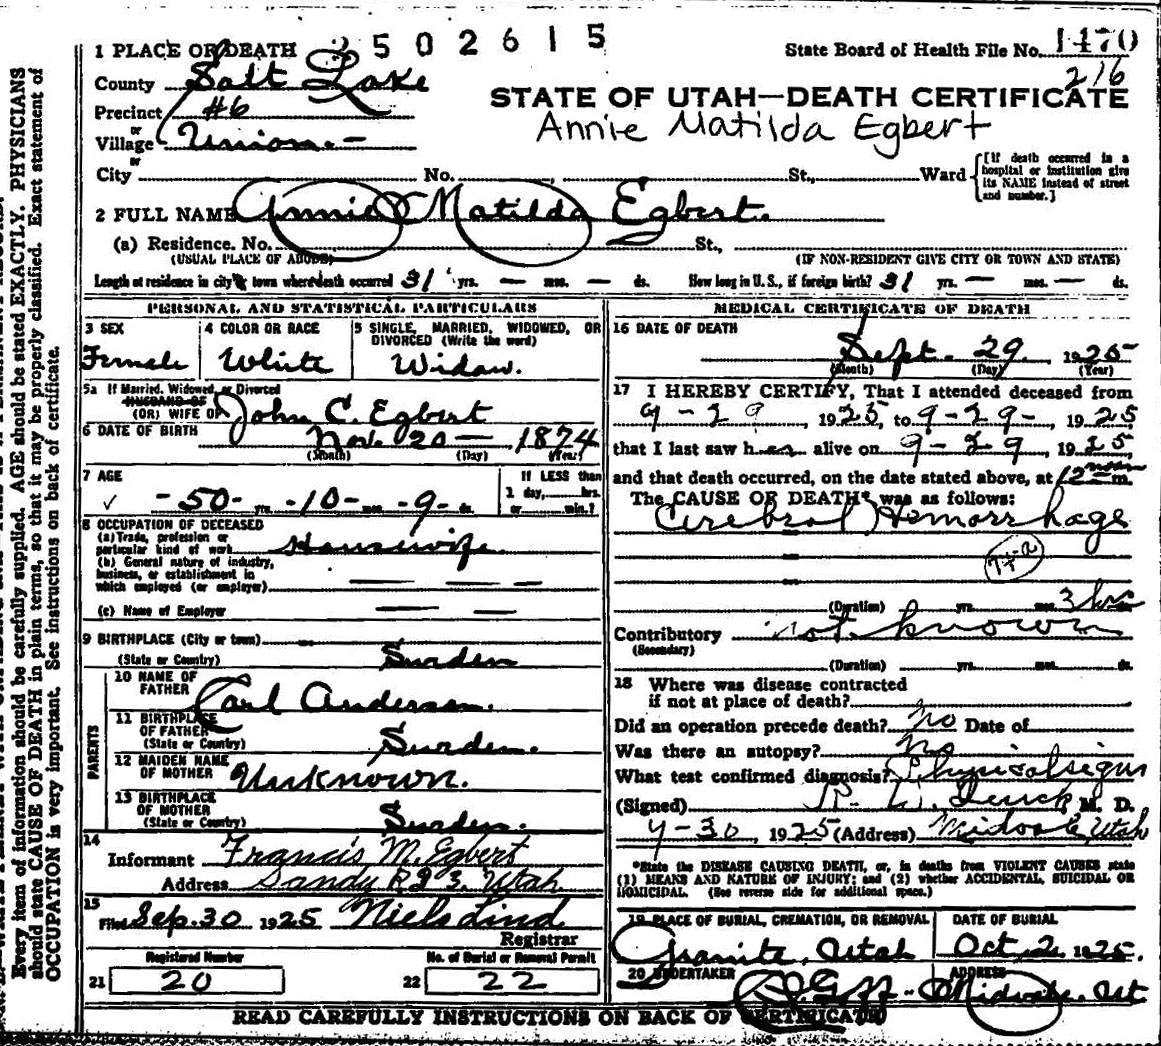 2502615
1 PLACE OF DEATH
State Board of Health File No. 1470
216
County Salt Lake
Precinct #6
or
Village Union.-
or
City No. St., Ward
[If death occurred in a hospital or institution give its NAME instead of street and number.]
STATE OF UTAH—DEATH CERTIFICATE
Annie Matilda Egbert
2 FULL NAME Annie Matilda Egbert.
(a) Residence. No. St.,
(USUAL PLACE OF ABODE)
(IF NON-RESIDENT GIVE CITY OR TOWN AND STATE)
Length of residence in city or town where death occurred 31 yrs. — mos. — ds.
How long in U. S., if foreign birth? 31 yrs. — mos. — ds.
PERSONAL AND STATISTICAL PARTICULARS
3 SEX
Female
4 COLOR OR RACE
White
5 SINGLE, MARRIED, WIDOWED, OR
DIVORCED (Write the word)
Widow.
5a If Married, Widowed, or Divorced
HUSBAND OF
(OR) WIFE OF John C. Egbert
6 DATE OF BIRTH Nov. 20 — , 1874
(Month) (Day) (Year)
7 AGE
✓ -50- yrs. -10- mos. -9- ds.
If LESS than
1 day, hrs.
or min.?
8 OCCUPATION OF DECEASED
(a) Trade, profession or
particular kind of work Housewife.
(b) General nature of industry,
business, or establishment in
which employed (or employer)
(c) Name of Employer
9 BIRTHPLACE (City or town)
(State or Country) Sweden
PARENTS
10 NAME OF
FATHER Carl Anderson.
11 BIRTHPLACE
OF FATHER
(State or Country) Sweden.
12 MAIDEN NAME
OF MOTHER Unknown.
13 BIRTHPLACE
OF MOTHER
(State or Country) Sweden.
14
Informant Francis M. Egbert
Address Sandy R D 3. Utah
15
Filed Sep. 30 1925 Niels Lind
Registrar
Registered Number
21 20
No. of Burial or Removal Permit
22 22
MEDICAL CERTIFICATE OF DEATH
16 DATE OF DEATH
Sept. 29, 1925
(Month) (Day) (Year)
17 I HEREBY CERTIFY, That I attended deceased from
9-29, 1925, to 9-29-, 1925
that I last saw her alive on 9-29, 1925,
and that death occurred, on the date stated above, at 12 noon m.
The CAUSE OF DEATH* was as follows:
Cerebral Hemorrhage
74-a
(Duration) yrs. mos. 3 hrs ds.
Contributory not known
(Secondary)
(Duration) yrs. mos. ds.
18 Where was disease contracted
if not at place of death?
Did an operation precede death? no Date of
Was there an autopsy? no
What test confirmed diagnosis? Physical signs
(Signed) M. D.
9-30, 1925 (Address) Midvale, Utah
*State the DISEASE CAUSING DEATH, or, in deaths from VIOLENT CAUSES state
(1) MEANS AND NATURE OF INJURY; and (2) whether ACCIDENTAL, SUICIDAL OR
HOMICIDAL. (See reverse side for additional space.)
19 PLACE OF BURIAL, CREMATION, OR REMOVAL
Granite, Utah
DATE OF BURIAL
Oct. 2, 1925.
20 UNDERTAKER
Goff
ADDRESS
Midvale, Ut
READ CAREFULLY INSTRUCTIONS ON BACK OF CERTIFICATE
Every item of information should be carefully supplied. AGE should be stated EXACTLY. PHYSICIANS
should state CAUSE OF DEATH in plain terms, so that it may be properly classified. Exact statement of
OCCUPATION is very important. See instructions on back of certificate.